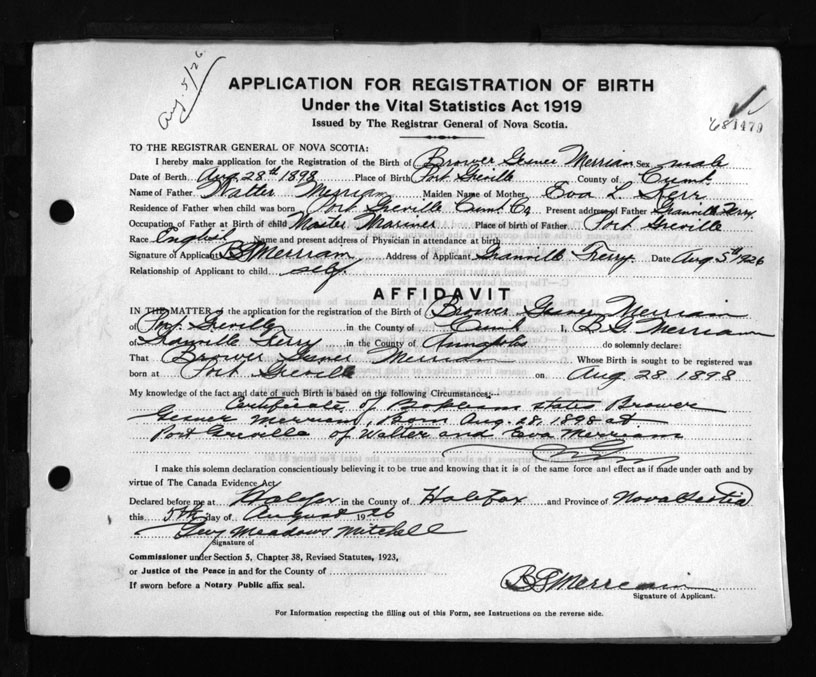 Aug. 5/26
APPLICATION FOR REGISTRATION OF BIRTH
Under the Vital Statistics Act 1919
Issued by The Registrar General of Nova Scotia.
TO THE REGISTRAR GENERAL OF NOVA SCOTIA:
I hereby make application for the Registration of the Birth of Brower Gesner Merriam Sex male
Date of Birth Aug 28th 1898 Place of Birth Port Greville County of Cumb.
Name of Father Walter Merriam Maiden Name of Mother Eva L. Kerr
Residence of Father when child was born Port Greville Cumb. Co Present address of Father Granville Ferry.
Occupation of Father at Birth of child Master Mariner Place of birth of Father Port Greville
Race English Name and present address of Physician in attendance at birth
Signature of Applicant BG Merriam Address of Applicant Granville Ferry. Date Aug 5th 1926
Relationship of Applicant to child self.
AFFIDAVIT
IN THE MATTER of the application for the registration of the Birth of Brower Gesner Merriam
of Port Greville in the County of Cumb I, B G Merriam
of Granville Ferry in the County of Annapolis do solemnly declare:
That Brower Gesner Merriam Whose Birth is sought to be registered was
born at Port Greville on Aug 28 1898
My knowledge of the fact and date of such Birth is based on the following Circumstances:—
Certificate of Baptism states Brower
Gesner Merriam, Born Aug. 28, 1898 at
Port Greville of Walter and Eva Merriam
I make this solemn declaration conscientiously believing it to be true and knowing that it is of the same force and effect as if made under oath and by
virtue of The Canada Evidence Act.
Declared before me at Halifax in the County of Halifax and Province of Nova Scotia
this 5th day of August 1926
Meadows Mitchell
Signature of
Commissioner under Section 5, Chapter 38, Revised Statutes, 1923,
or Justice of the Peace in and for the County of
If sworn before a Notary Public affix seal.
BG Merriam
Signature of Applicant.
For Information respecting the filling out of this Form, see Instructions on the reverse side.